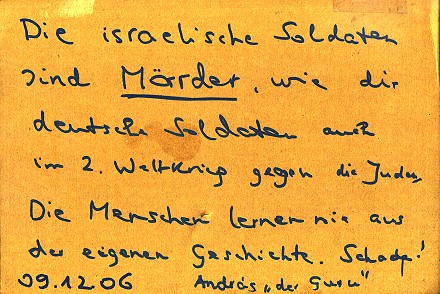 Die israelische Soldaten
sind Mörder, wie die
deutsche Soldaten auch
im 2. Weltkrieg gegen die Juden,
Die Menschen lernen nie aus
der eigenen Geschichte. Schade!
09.12.06 András „der Guru"